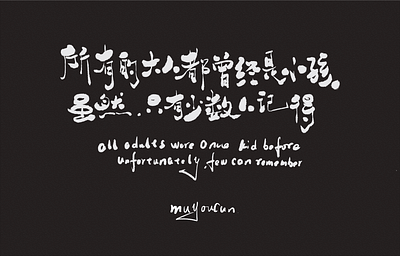 所有的大人都曾经是小孩。
虽然,只有少数人记得
all adults were once kid before
unfortunately, few can remember
muyoucun